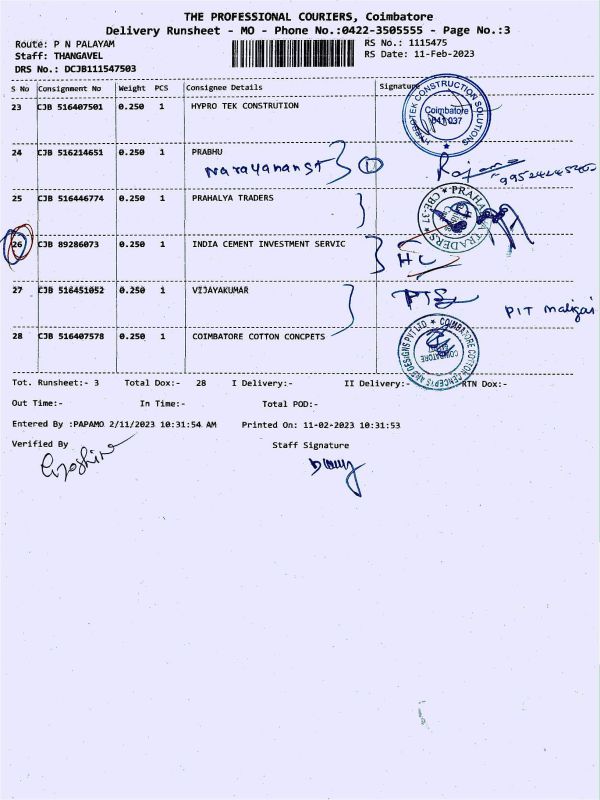 THE PROFESSIONAL COURIERS, Coimbatore
Delivery Runsheet - MO - Phone No.:0422-3505555 - Page No.:3
Route: P N PALAYAM
RS No.: 1115475
Staff: THANGAVEL
RS Date: 11-Feb-2023
DRS No.: DCJB111547503
S No Consignment No Weight PCS Consignee Details Signature
23 CJB 516407501 0.250 1 HYPRO TEK CONSTRUTION
HYPROTEK CONSTRUCTION SOLUTIONS
Coimbatore
641 037
24 CJB 516214651 0.250 1 PRABHU
Narayananst 1
25 CJB 516446774 0.250 1 PRAHALYA TRADERS
PRAHALYA TRADERS CBE-37
26 CJB 89286073 0.250 1 INDIA CEMENT INVESTMENT SERVIC
HC
27 CJB 516451052 0.250 1 VIJAYAKUMAR
PIT maligai
28 CJB 516407578 0.250 1 COIMBATORE COTTON CONCPETS
COIMBATORE COTTON CONCEPTS AND DESIGNS PVT LTD
COIMBATORE
Tot. Runsheet:- 3 Total Dox:- 28 I Delivery:- II Delivery:- RTN Dox:-
Out Time:- In Time:- Total POD:-
Entered By :PAPAMO 2/11/2023 10:31:54 AM Printed On: 11-02-2023 10:31:53
Verified By Staff Signature